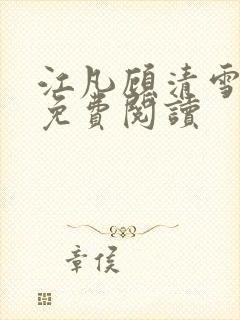 江凡顧清雪
免費閱讀
章侯